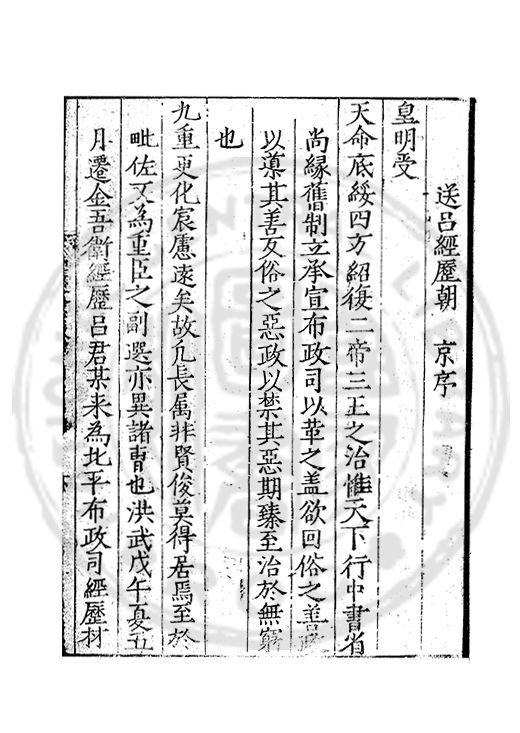 送呂經歷朝　京序
皇明受
天命底綏四方紹復二帝三王之治惟天下行中書省
尚緣舊制立承宣布政司以革之盖欲回俗之善政
以導其善反俗之惡政以禁其惡期臻至治於無窮
也
九重更化宸慮遠矣故凡長属非賢俊莫得居焉至於
毗佐又為重臣之副選亦異諸曹也洪武戊午夏五
月遷金吾衛經歷呂君某来為北平布政司經歷材